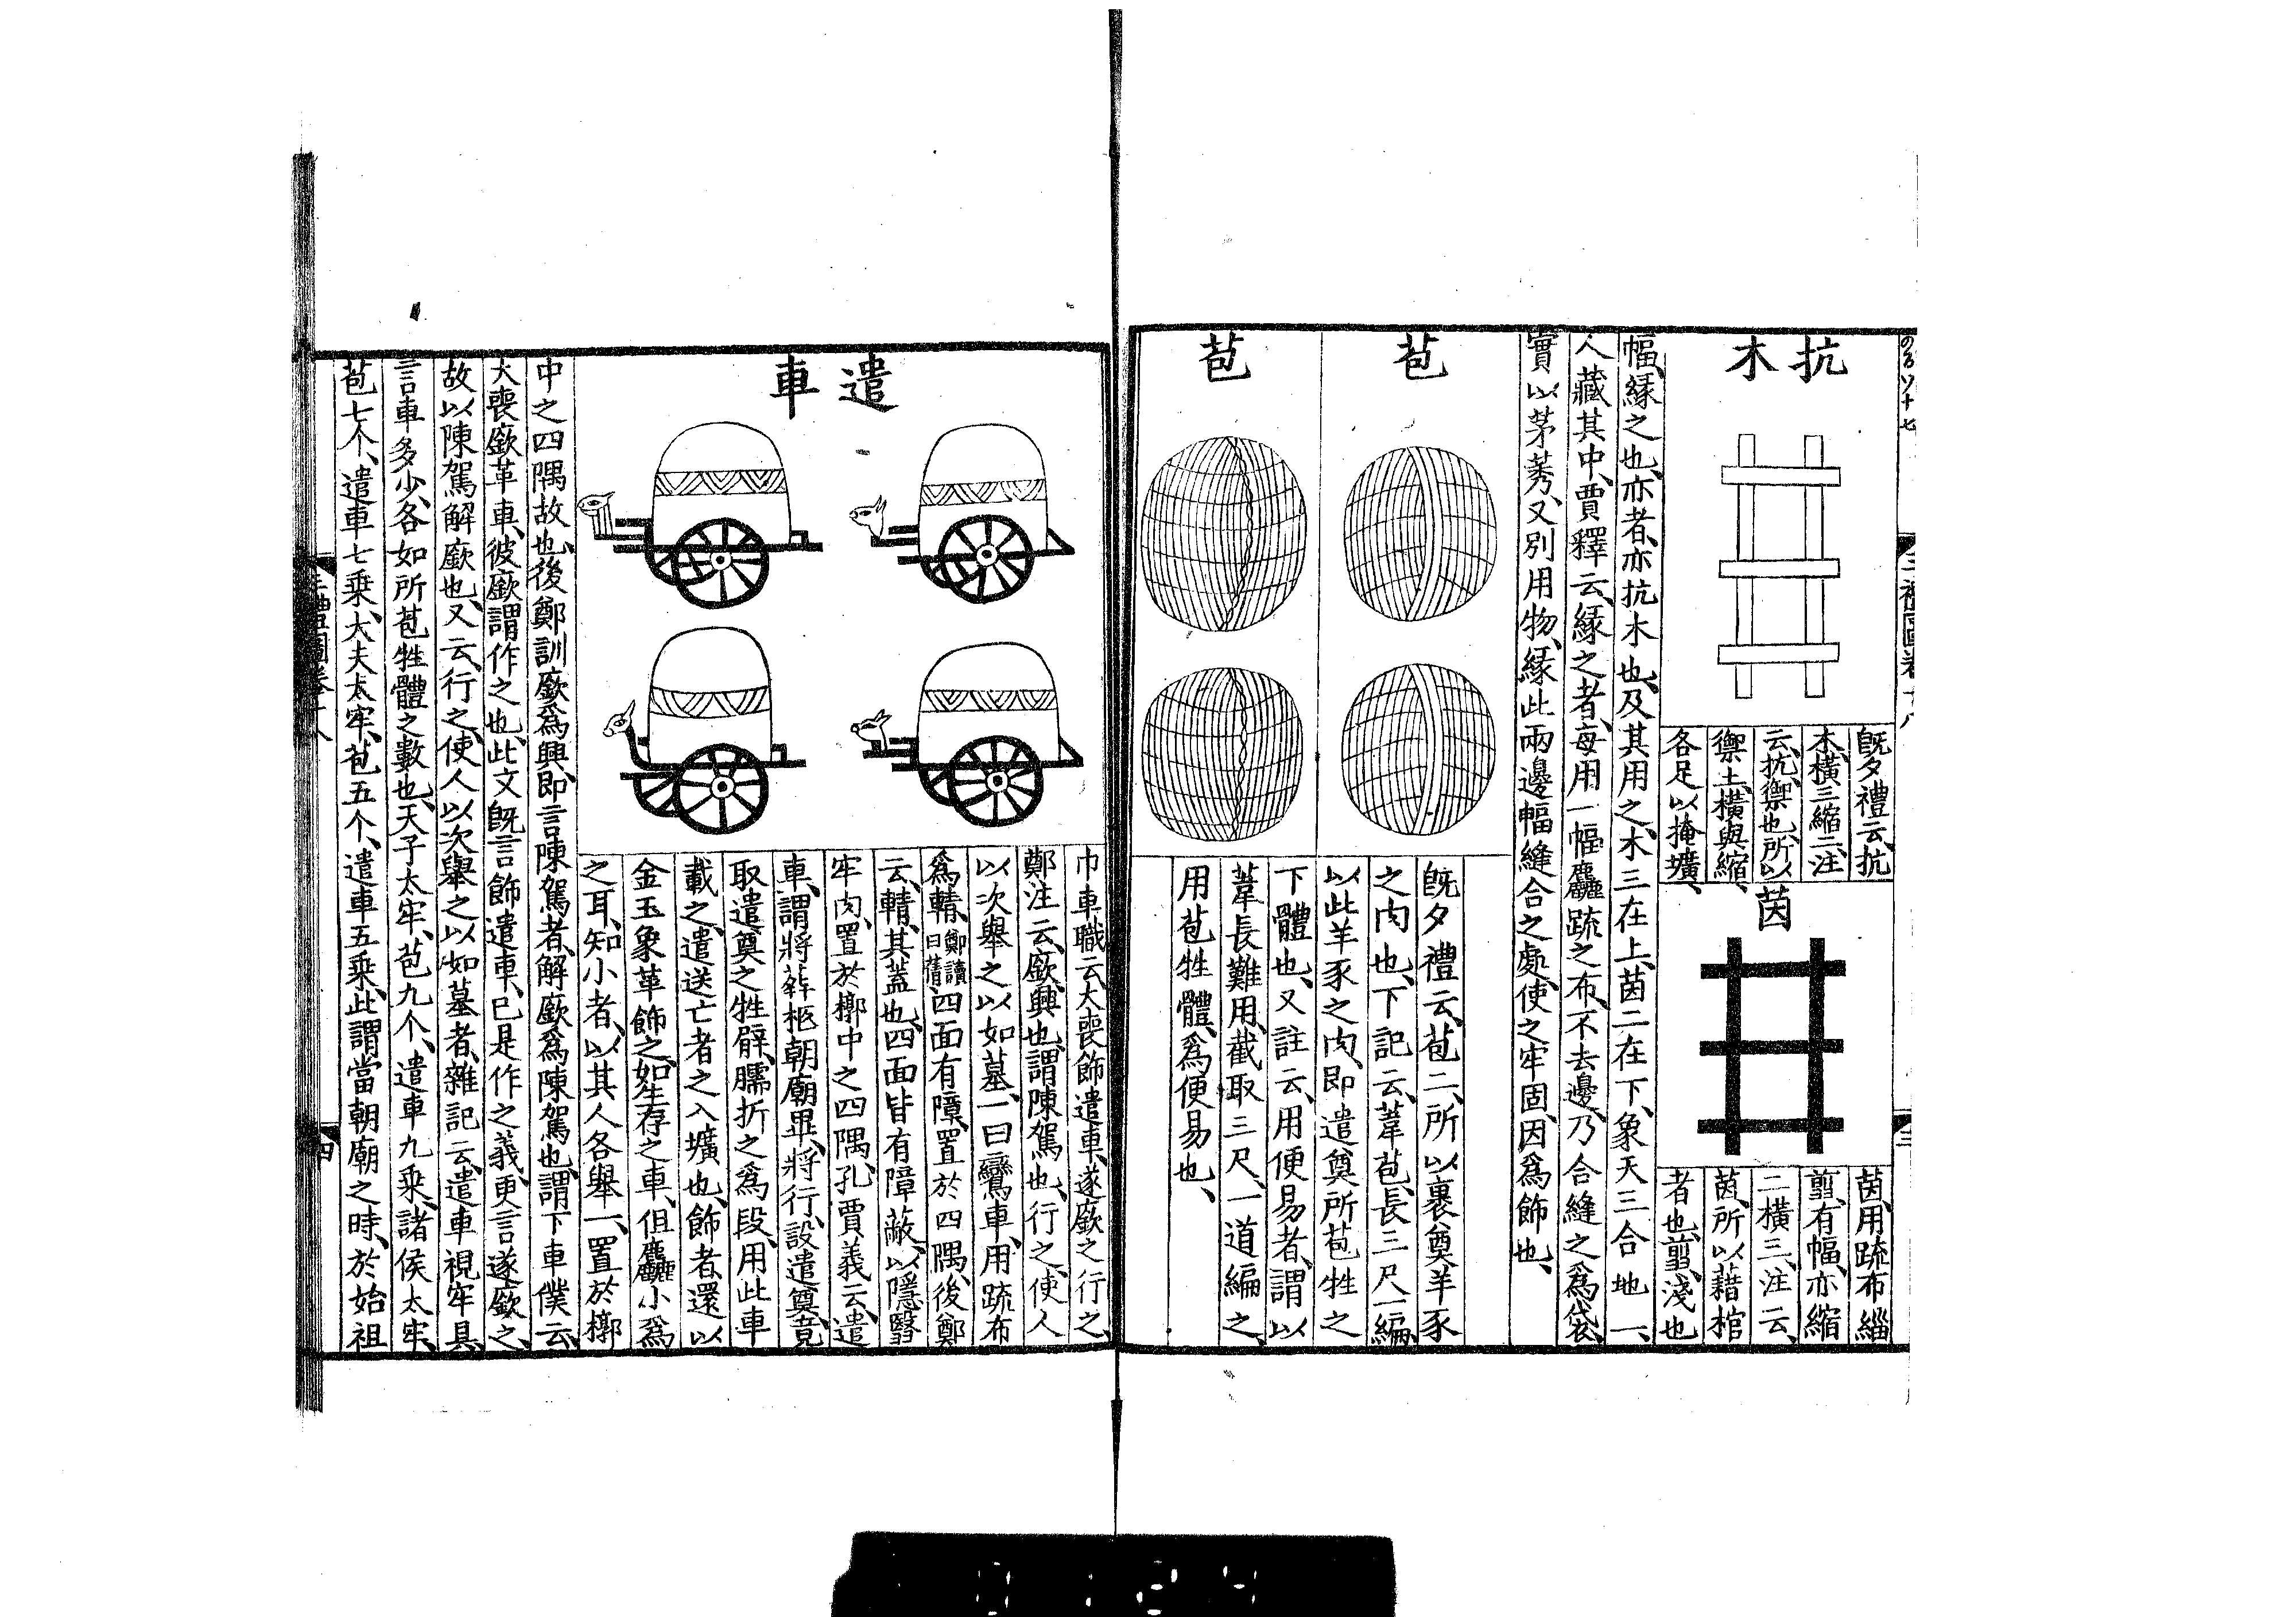 抗木
既夕禮云、抗
木、橫三縮二、注
云、抗、禦也、所以
禦土、橫與縮、
各足以掩壙、
茵
茵、用疏布緇
翦、有幅、亦縮
二橫三、注云、
茵、所以藉棺
者也、翦、淺也
幅、緣之也、亦者、亦抗木也、及其用之、木三在上、茵二在下、象天三合地一、
人藏其中、賈釋云、緣之者、每用一幅麤疏之布、不去邊、乃合縫之爲袋、
實以茅莠、又別用物、緣此兩邊幅縫合之處、使之牢固、因爲飾也、
苞
苞
既夕禮云、苞二、所以裹奠羊豕
之肉也、下記云、葦苞、長三尺一編、
以此羊豕之肉、即遣奠所苞牲之
下體也、又註云、用便易者、謂以
葦長難用、截取三尺、一道編之、
用苞牲體、爲便易也、
三
遣車
巾車職云、大喪飾遣車、遂廞之行之、
鄭注云、廞、興也、謂陳駕也、行之、使人
以次舉之以如墓、一曰鸞車、用疏布
爲輤、鄭讀曰蒨、四面有障、置於四隅、後鄭
云、輤、其蓋也、四面皆有障蔽、以隱翳
牢肉、置於槨中之四隅、孔賈義云、遣
車、謂將葬柩朝廟畢、將行、設遣奠、竟
取遣奠之牲臂、臑折之爲段、用此車
載之、遣送亡者之入壙也、飾者、還以
金玉象革飾之、如生存之車、但麤小爲
之耳、知小者、以其人各舉一、置於槨
中之四隅故也、後鄭訓廞爲興、即言陳駕者、解廞爲陳駕也、謂下車僕云、
大喪廞革車、彼廞謂作之也、此文既言飾遣車、已是作之義、更言遂廞之、
故以陳駕解廞也、又云、行之、使人以次舉之以如墓者、雜記云、遣車視牢具、
言車多少、各如所苞牲體之數也、天子太牢、苞九个、遣車九乘、諸侯太牢、
苞七个、遣車七乘、大夫太牢、苞五个、遣車五乘、此謂當朝廟之時、於始祖
四